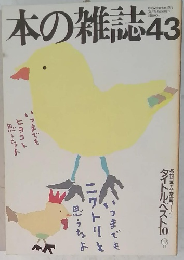 本の雑誌43
いつまでも
ヒヨコと
思うなよ
いつまでも
ニワトリと
思うなよ
タイトルベスト10